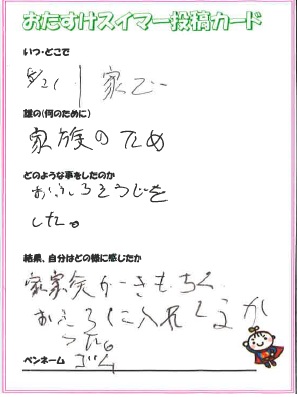 おたすけスイマー投稿カード
いつ・どこで
5/21 家で
誰の(何のために)
家族のため
どのような事をしたのか
おふろそうじを
した。
結果、自分はどの様に感じたか
家家族がーきもちく
おふろに入れてよか
った。
ペンネーム ゴム